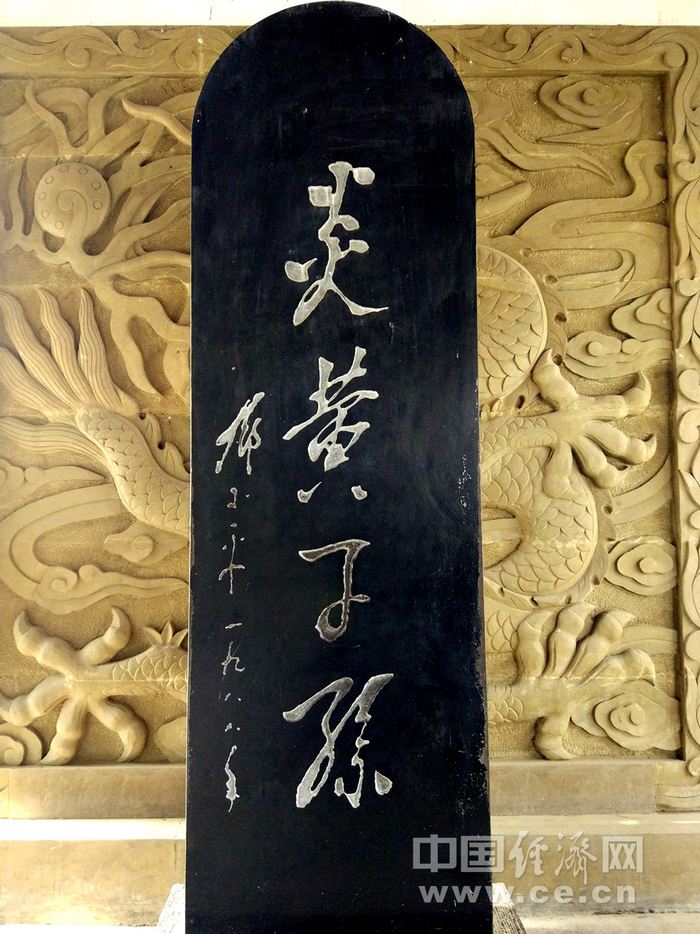 炎黄子孙
邓小平 一九八八年
中国经济网
www.ce.cn